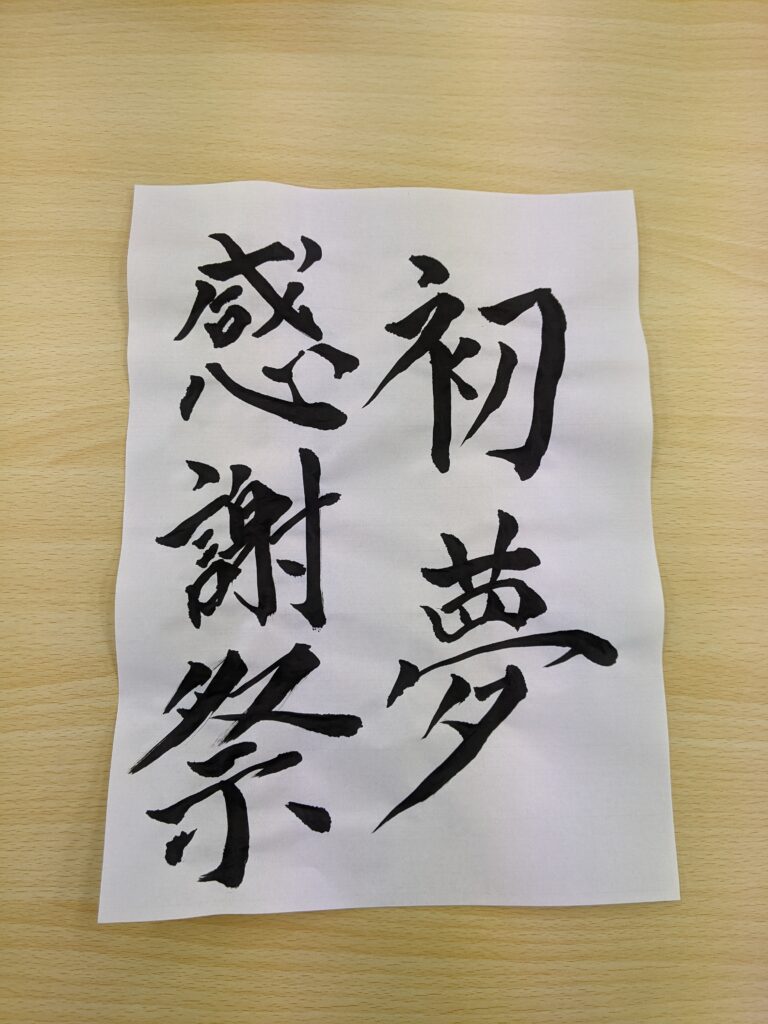 初夢
感謝祭